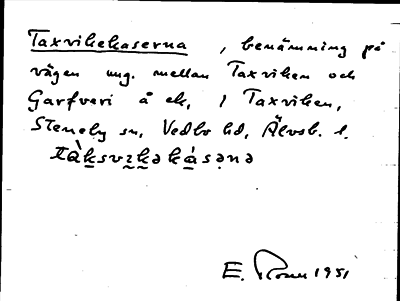 Taxvikekaserna, benämning på
vägen ung. mellan Taxviken och
Garfveri å ek, / Taxviken,
Steneby sn, Vedbo hd, Älvsb. l.
E. 1951